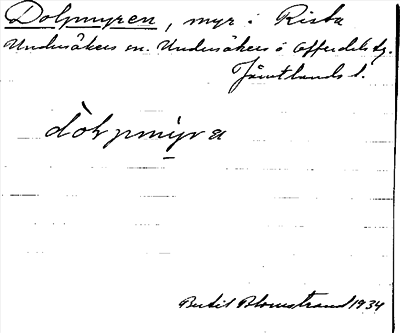 Dolpmyren, myr i Rista
Undersåkers sn. Undersåkers o Offerdals tg.
Jämtlands l.
dòlpmyra
Bertil Blomstrand 1934